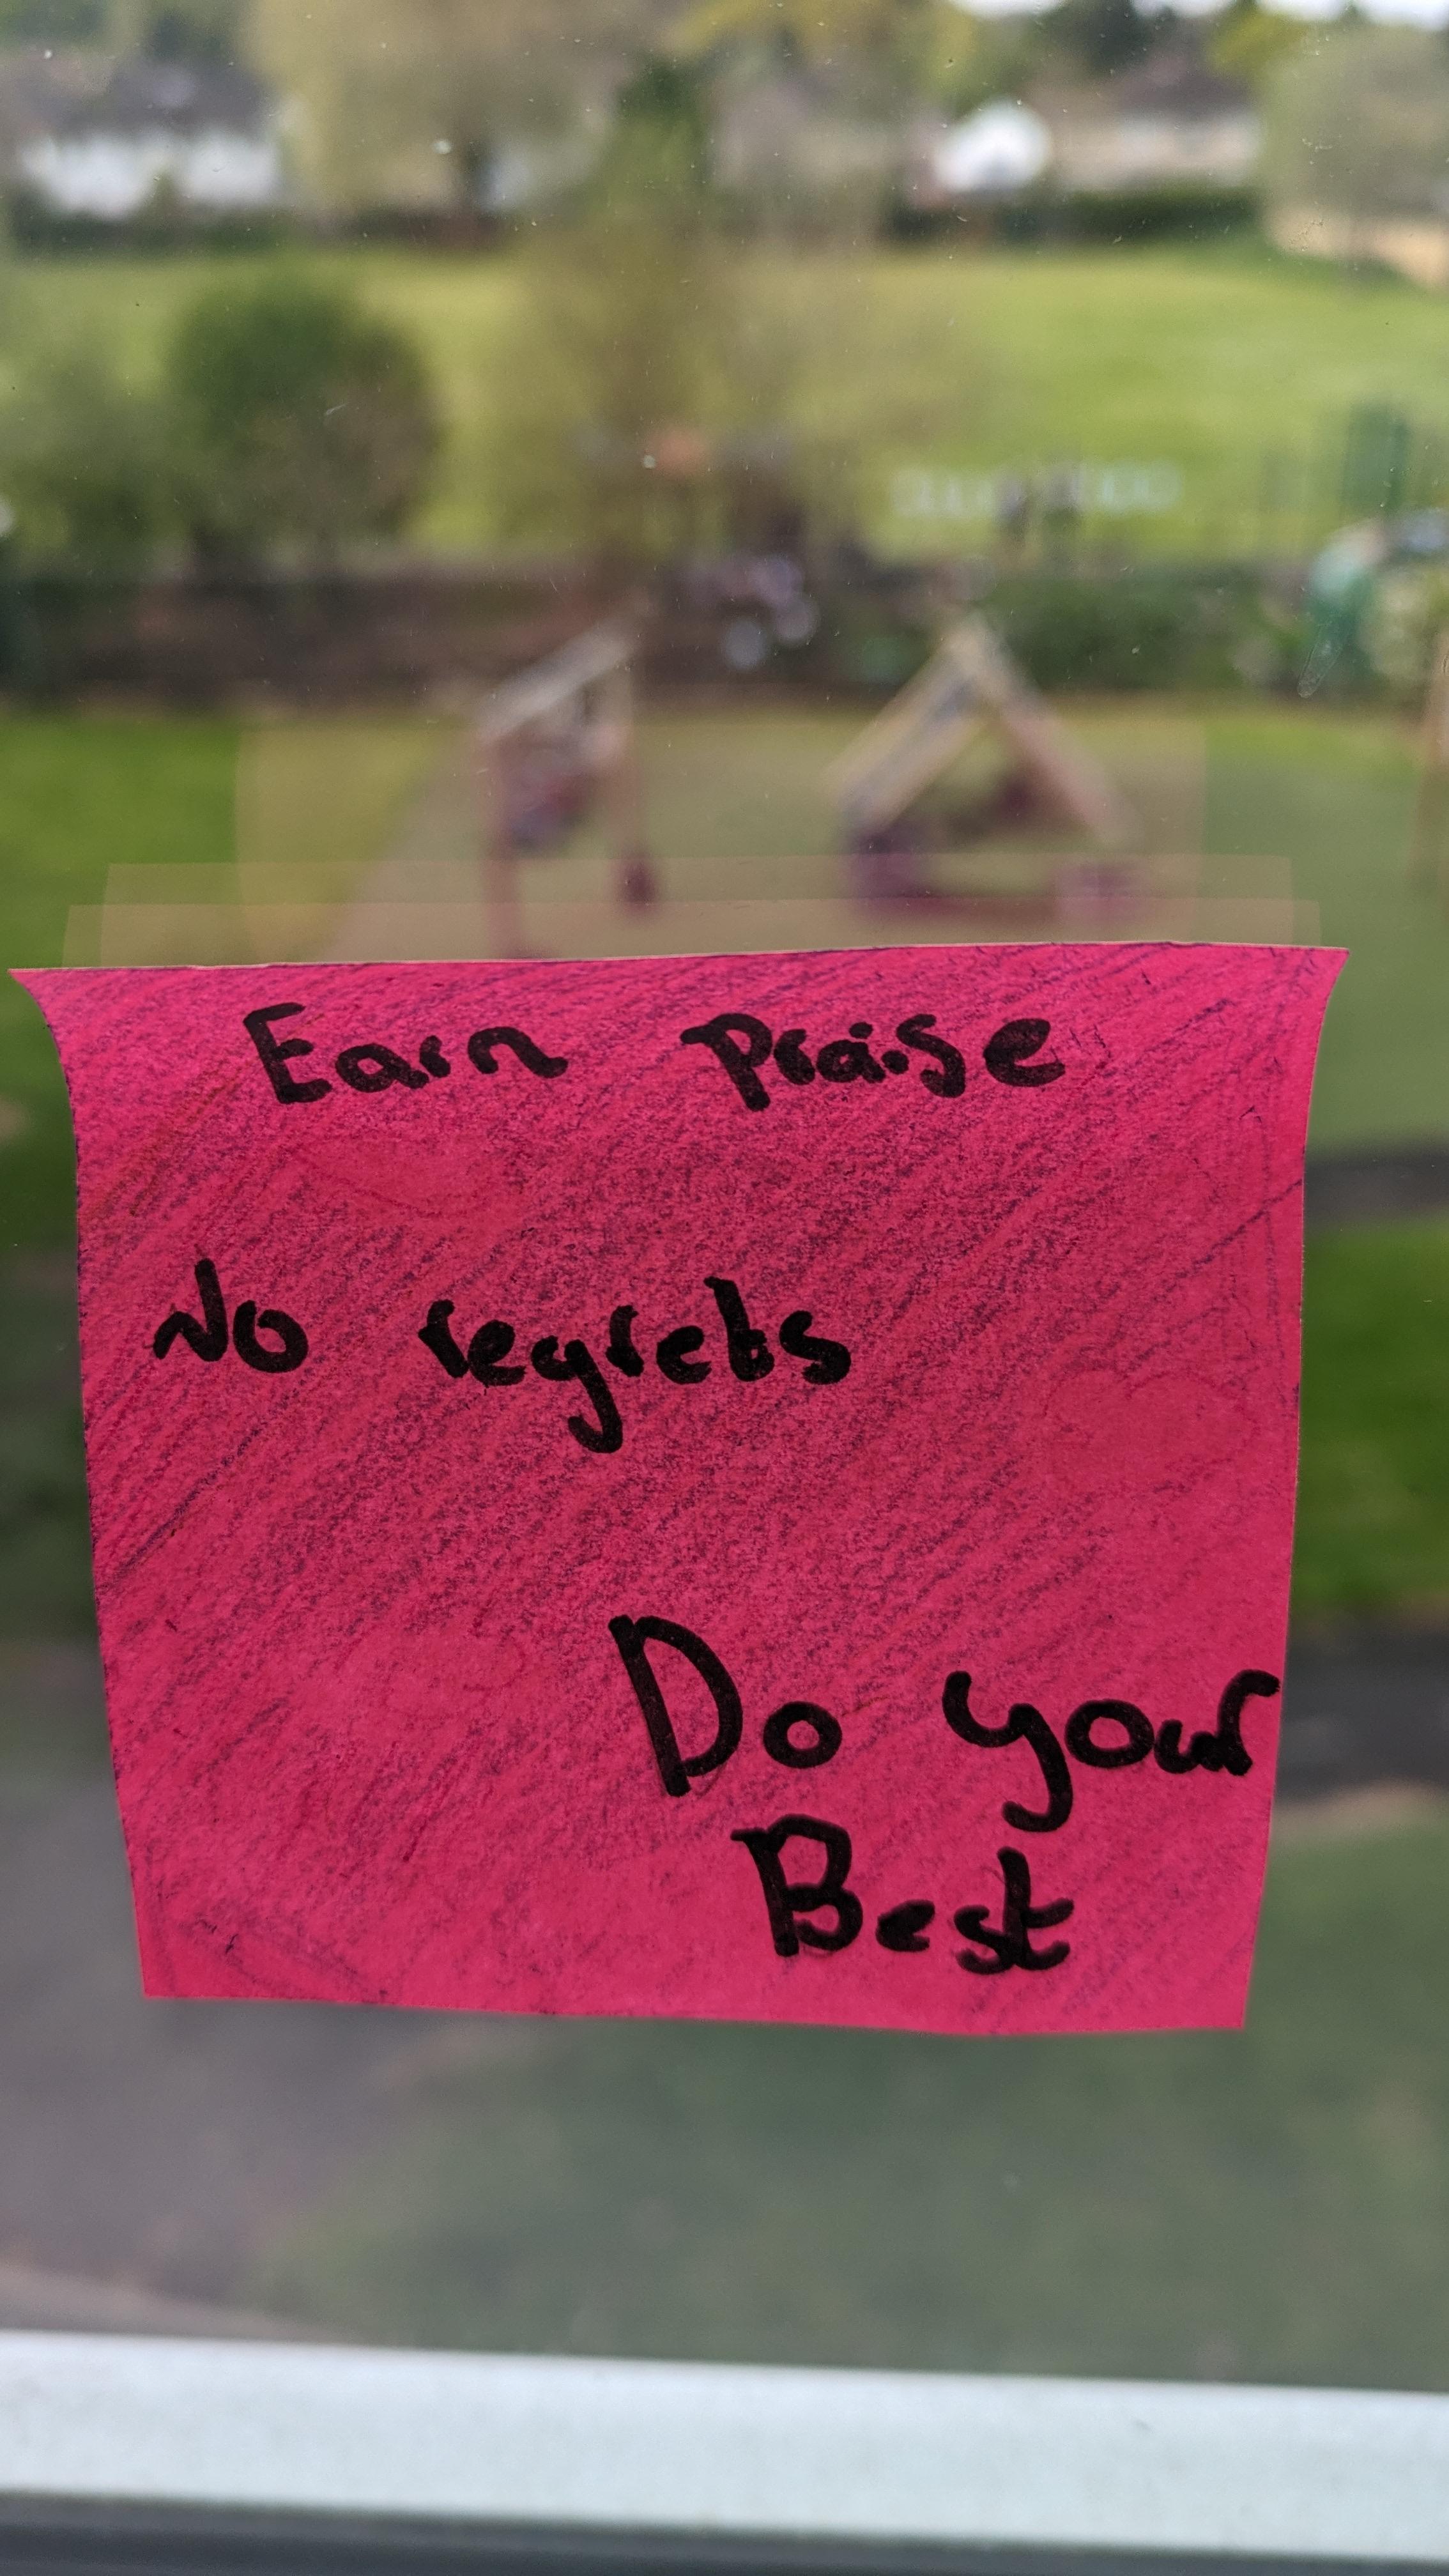 Earn praise
No regrets
Do your
Best